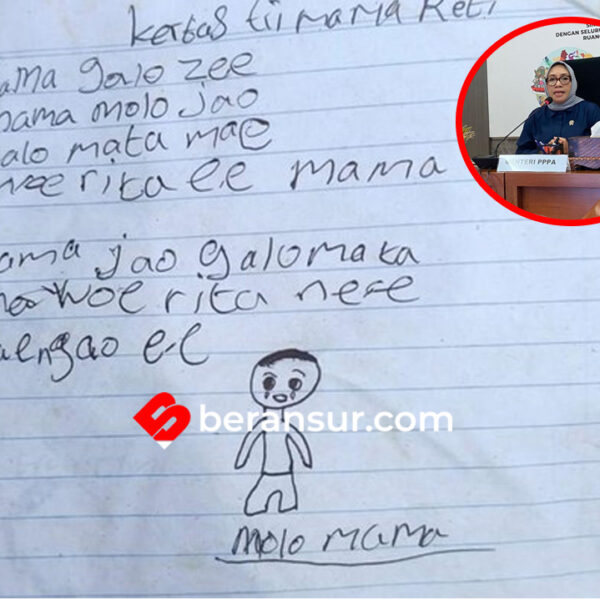 kertas tii mama Reti
galo zee
mama molo jao
mata mae
rita e.e mama
jao galo mata
woe rita ne e
e.e
molo mama
beransur.com
DENGAN SELURU
RUANG
MENTERI PPPA